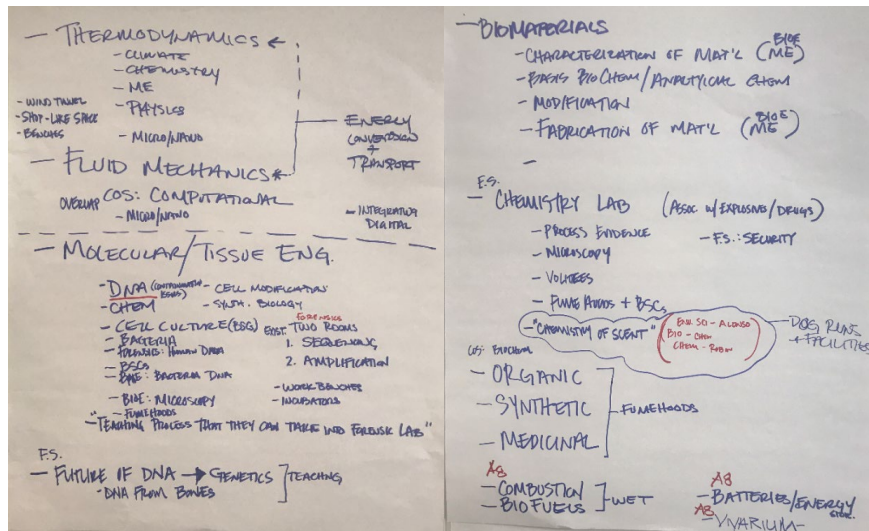 - THERMODYNAMICS
- CLIMATE
- CHEMISTRY
- ME
- PHYSICS
- MICRO/NANO
- WIND TUNNEL
- SHOP-LIKE SPACE
- BENCHES
- ENERGY
CONVERSION
+
TRANSPORT
- FLUID MECHANICS*
OVERLAP COS: COMPUTATIONAL
- MICRO/NANO
- INTEGRATING
DIGITAL
- MOLECULAR/TISSUE ENG.
- DNA (CONTAMINATION ISSUES)
- CHEM
- CELL MODIFICATION
- SYNTH. BIOLOGY
- CELL CULTURE (BSC)
- BACTERIA
- FORENSICS: HUMAN DNA
- BSCs
- BIOE: BACTERIA DNA
- BIOE: MICROSCOPY
- FUMEHOODS
FORENSICS
EXIST. TWO ROOMS
1. SEQUENCING
2. AMPLIFICATION
- WORK BENCHES
- INCUBATORS
"- TEACHING PROCESS THAT THEY CAN TAKE INTO FORENSIC LAB"
F.S.
- FUTURE OF DNA → GENETICS ] TEACHING
- DNA FROM BONES
- BIOMATERIALS
- CHARACTERIZATION OF MAT'L (BIOE ME)
- BASIS BIOCHEM/ANALYTICAL CHEM
- MODIFICATION
- FABRICATION OF MAT'L (BIOE ME)
-
F.S.
- CHEMISTRY LAB (ASSOC. W/ EXPLOSIVES/DRUGS)
- PROCESS EVIDENCE
- F.S.: SECURITY
- MICROSCOPY
- FUME HOODS + BSCs
- "CHEMISTRY OF SCENT"
- ALONSO
BIO - CHEM
CHEM -
- DOG RUNS
+ FACILITIES
COS: BIOCHEM
- ORGANIC
- SYNTHETIC
- MEDICINAL
- FUMEHOODS
AB
- COMBUSTION
- BIO FUELS
- WET
AB
- BATTERIES/ENERGY
STOR.
AB
- VIVARIUM -